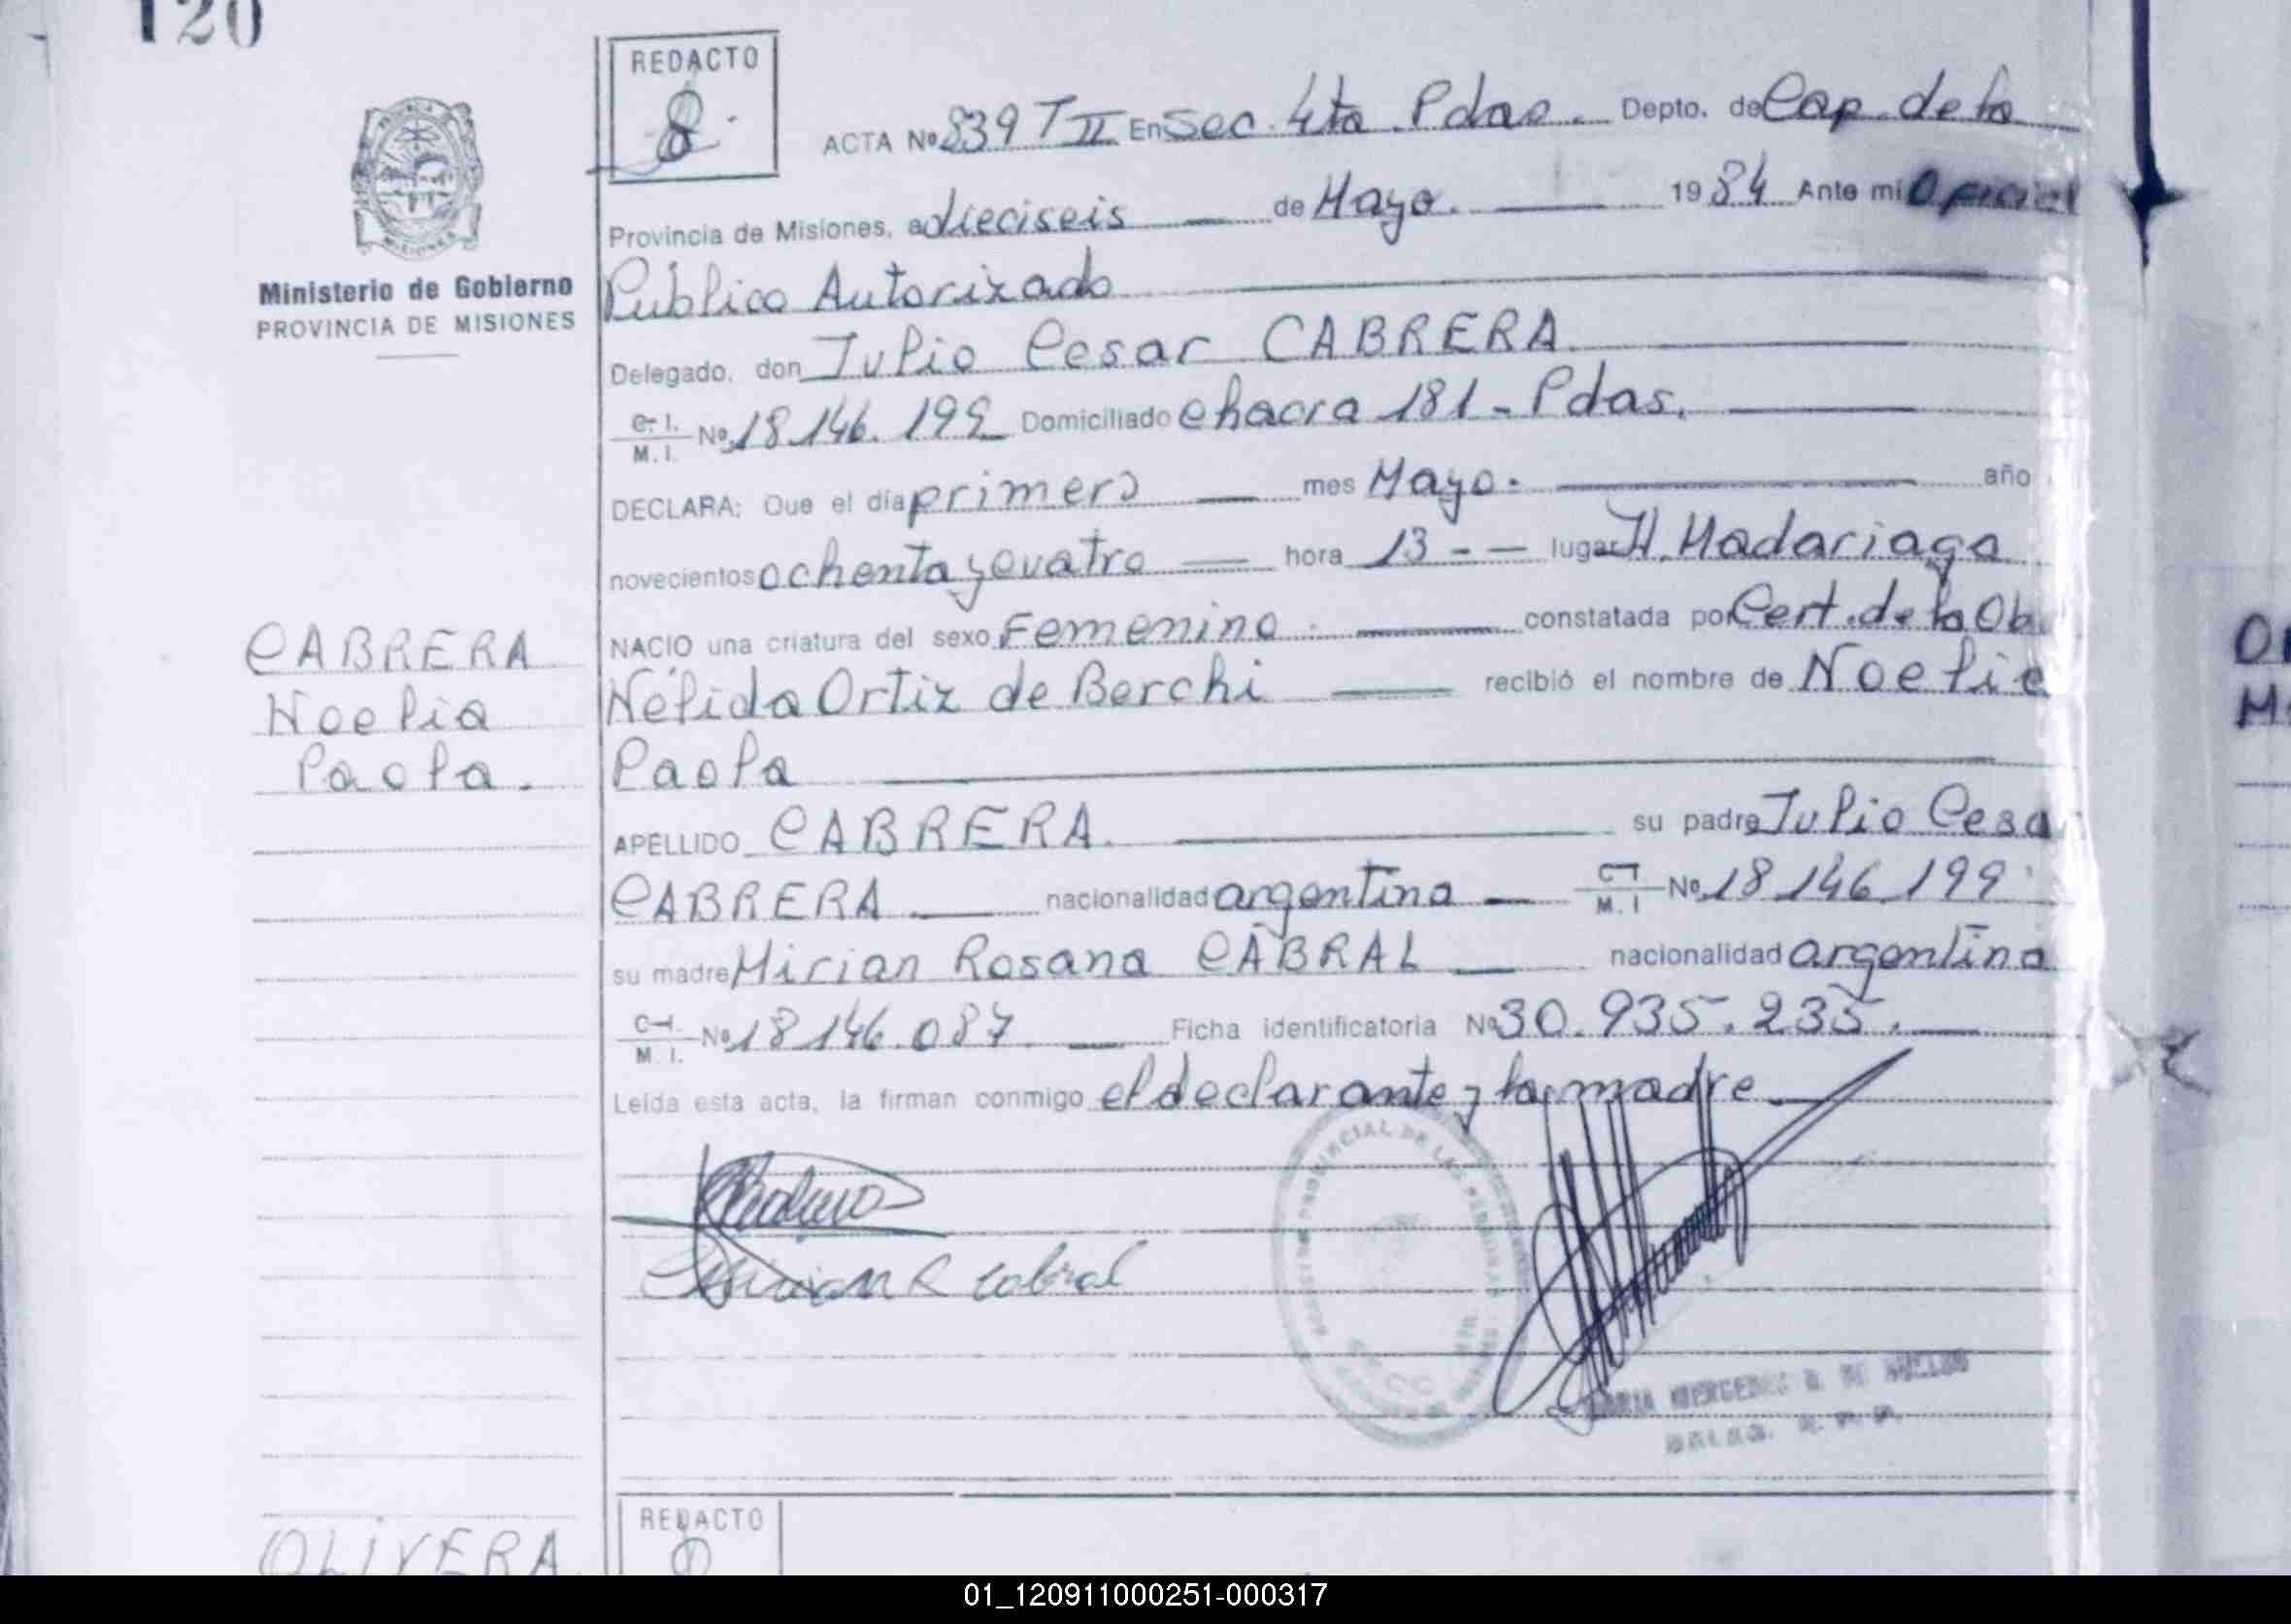 120
REDACTO
8.
ACTA Nº 839 T II En Sec. 4ta. Pdas. Depto. de Cap. de la
Provincia de Misiones, a dieciseis de Mayo. 1984 Ante mi Oficial
Público Autorizado
Delegado, don Julio Cesar CABRERA
C. I. M. I. Nº 18.146.199 Domiciliado Chacra 181 - Pdas.
DECLARA: Que el día primero mes Mayo. año
novecientos ochenta y cuatro hora 13 - - lugar H. Madariaga
NACIO una criatura del sexo Femenino. constatada por Cert. de la Ob.
Nélida Ortiz de Berchi recibió el nombre de Noelia
Paola
APELLIDO CABRERA. su padre Julio Cesa
CABRERA nacionalidad argentina C I M. I Nº 18.146.199
su madre Mirian Rosana CABRAL nacionalidad argentina
C. I. M. I. Nº 18.146.087 Ficha identificatoria Nº 30.935.235.
Leída esta acta, la firman conmigo el declarante y la madre
Mirian R Cabral
REGISTRO PROVINCIAL DE LAS PERSONAS
MARIA MERCEDES
Ministerio de Gobierno
PROVINCIA DE MISIONES
CABRERA
Noelia
Paola.
REDACTO
OLIVERA
01_120911000251-000317